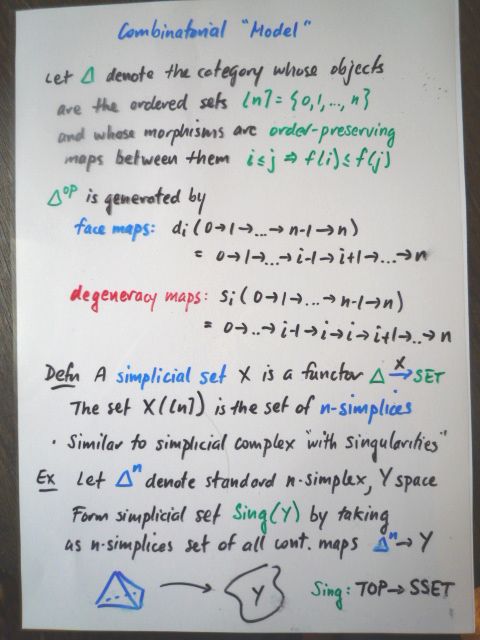 Combinatorial "Model"
Let Δ denote the category whose objects
are the ordered sets [n] = {0,1,..., n}
and whose morphisms are order-preserving
maps between them i ≤ j ⇒ f(i) ≤ f(j)
Δ^op is generated by
face maps: di (0→1→...→n-1→n)
= 0→1→...→i-1→i+1→...→n
degeneracy maps: si (0→1→...→n-1→n)
= 0→..→i-1→i→i→i+1→..→n
Defn A simplicial set X is a functor Δ X→ SET
The set X([n]) is the set of n-simplices
• Similar to simplicial complex "with singularities"
Ex Let Δ^n denote standard n-simplex, Y space
Form simplicial set Sing(Y) by taking
as n-simplices set of all cont. maps Δ^n → Y
Y Sing: TOP → SSET